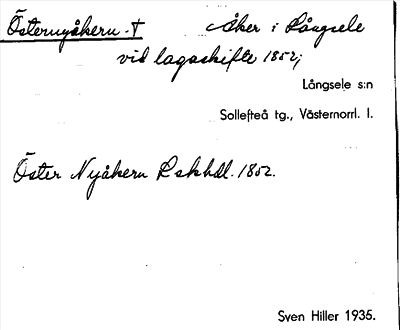 Östernyåkern. † Åker i Långsele
vid lagaskifte 1852;
Långsele s:n
Sollefteå tg., Västernorrl. l.
Öster Nyåkern L skhdl. 1852.
Sven Hiller 1935.